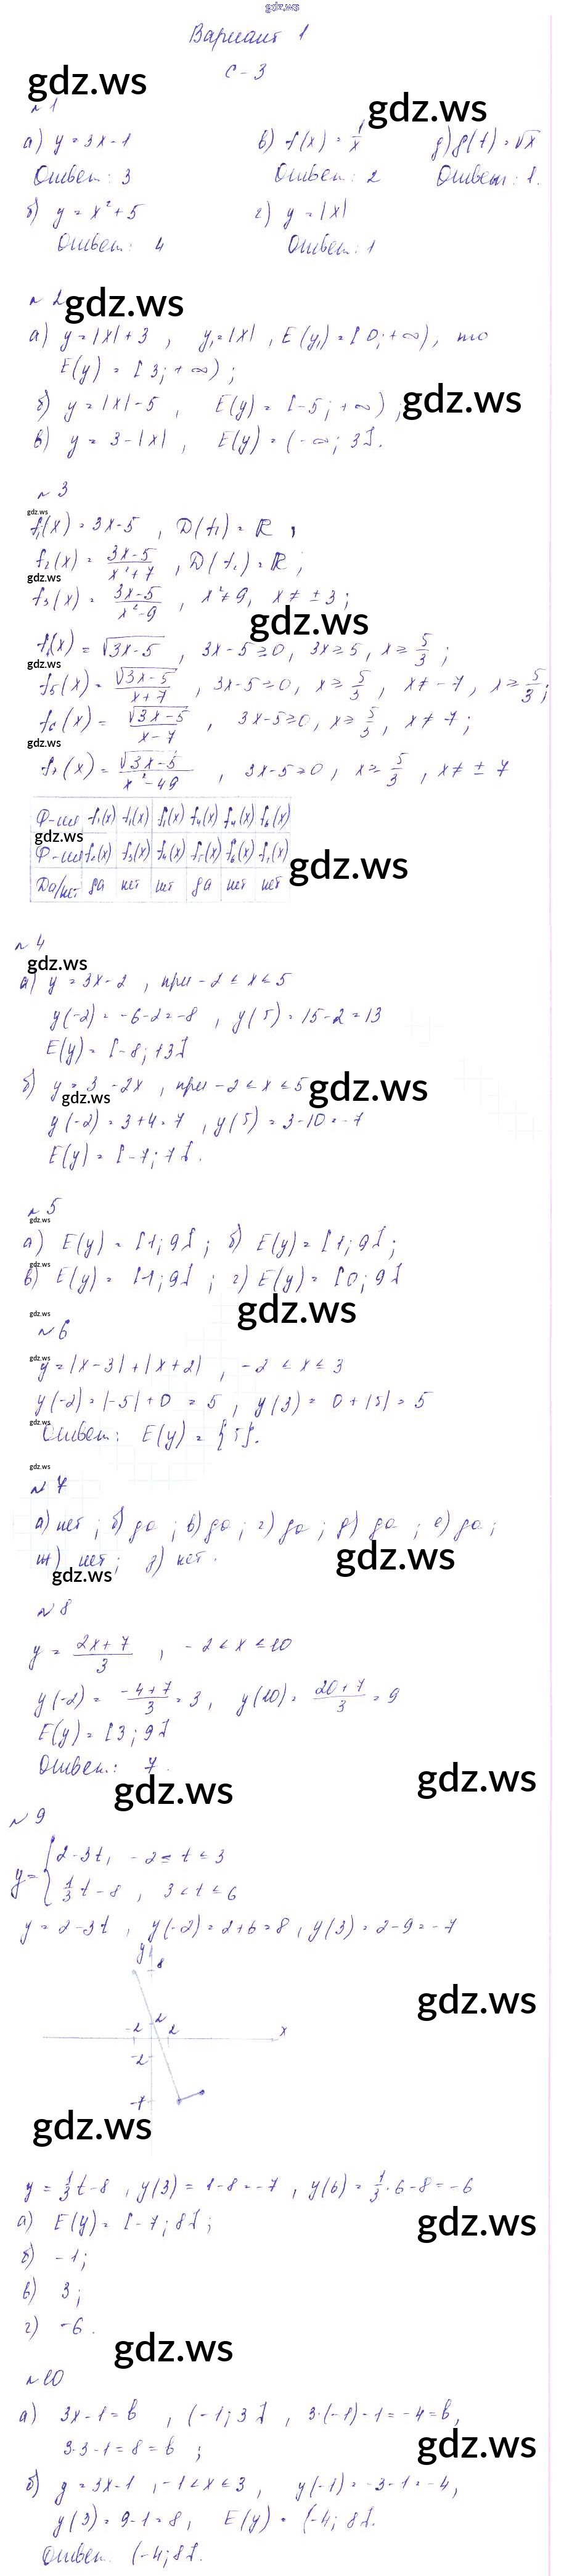 gdz.ws
Вариант 1
С-3
gdz.ws
№1
gdz.ws
а) y = 3x-1
в) f(x) = 1/x
д) g(t) = √x
Ответ: 3
Ответ: 2
Ответ: 1.
б) y = x² + 5
г) y = |x|
Ответ: 4
Ответ: 1
№2 gdz.ws
а) y = |x| + 3 , y₁ = |x| , E(y₁) = [0; +∞), то
E(y) = [3; +∞) ;
б) y = |x| - 5 , E(y) = [-5; +∞) ; gdz.ws
в) y = 3 - |x| , E(y) = (-∞; 3].
№3
gdz.ws
f₁(x) = 3x-5 , D(f₁) = R ,
f₂(x) = 3x-5/x²+7 , D(f₂) = R ;
gdz.ws
f₃(x) = 3x-5/x²-9 , x² ≠ 9, x ≠ ±3 ;
gdz.ws
f₄(x) = √3x-5 , 3x-5 ≥ 0, 3x ≥ 5, x ≥ 5/3 ;
gdz.ws
f₅(x) = √3x-5/x+7 , 3x-5 ≥ 0, x ≥ 5/3 , x ≠ -7 , x ≥ 5/3 ;
f₆(x) = √3x-5/x-7 , 3x-5 ≥ 0, x ≥ 5/3 , x ≠ 7 ;
gdz.ws
f₇(x) = √3x-5/x²-49 , 3x-5 ≥ 0 , x ≥ 5/3 , x ≠ ± 7
Ф-ция f₁(x) f₁(x) f₁(x) f₄(x) f₄(x) f₆(x)
gdz.ws
Ф-ция f₂(x) f₃(x) f₄(x) f₅(x) f₆(x) f₇(x)
gdz.ws
Да/нет да нет нет да нет нет
№4
gdz.ws
а) y = 3x-2 , при -2 ≤ x ≤ 5
y(-2) = -6-2 = -8 , y(5) = 15-2 = 13
E(y) = [-8; 13]
б) y = 3-2x , при -2 ≤ x ≤ 5 gdz.ws
gdz.ws
y(-2) = 3+4 = 7 , y(5) = 3-10 = -7
E(y) = [-7; 7].
№5
gdz.ws
а) E(y) = [1; 9] ; б) E(y) = [1; 9] ;
gdz.ws
в) E(y) = [1; 9] ; г) E(y) = [0; 9]
gdz.ws
gdz.ws
№6
gdz.ws
y = |x-3| + |x+2| , -2 ≤ x ≤ 3
y(-2) = |-5| + 0 = 5 , y(3) = 0 + |5| = 5
gdz.ws
Ответ: E(y) = {5}.
gdz.ws
№7
а) нет ; б) да ; в) да ; г) да ; д) да ; е) да ;
ж) нет ; з) нет .
gdz.ws
gdz.ws
№8
y = 2x+7/3 , -2 < x ≤ 10
y(-2) = -4+7/3 = 3 , y(10) = 20+7/3 = 9
E(y) = [3; 9]
Ответ: 7.
gdz.ws
gdz.ws
№9
y = { 2-3t, -2 ≤ t ≤ 3
1/3 t - 8 , 3 < t ≤ 6
y = 2-3t , y(-2) = 2+6 = 8 , y(3) = 2-9 = -7
y
8
gdz.ws
-2 2 2 x
-2
-7
gdz.ws
y = 1/3 t - 8 , y(3) = 1-8 = -7 , y(6) = 1/3 · 6 - 8 = -6
а) E(y) = [-7; 8] ;
gdz.ws
б) -1 ;
в) 3 ;
г) -6 .
gdz.ws
№10
а) 3x-1 = b , (-1; 3] , 3·(-1)-1 = -4 = b,
gdz.ws
3·3-1 = 8 = b ;
б) y = 3x-1 , -1 < x ≤ 3 , y(-1) = -3-1 = -4,
y(3) = 9-1 = 8 , E(y) = (-4; 8].
Ответ. (-4; 8].